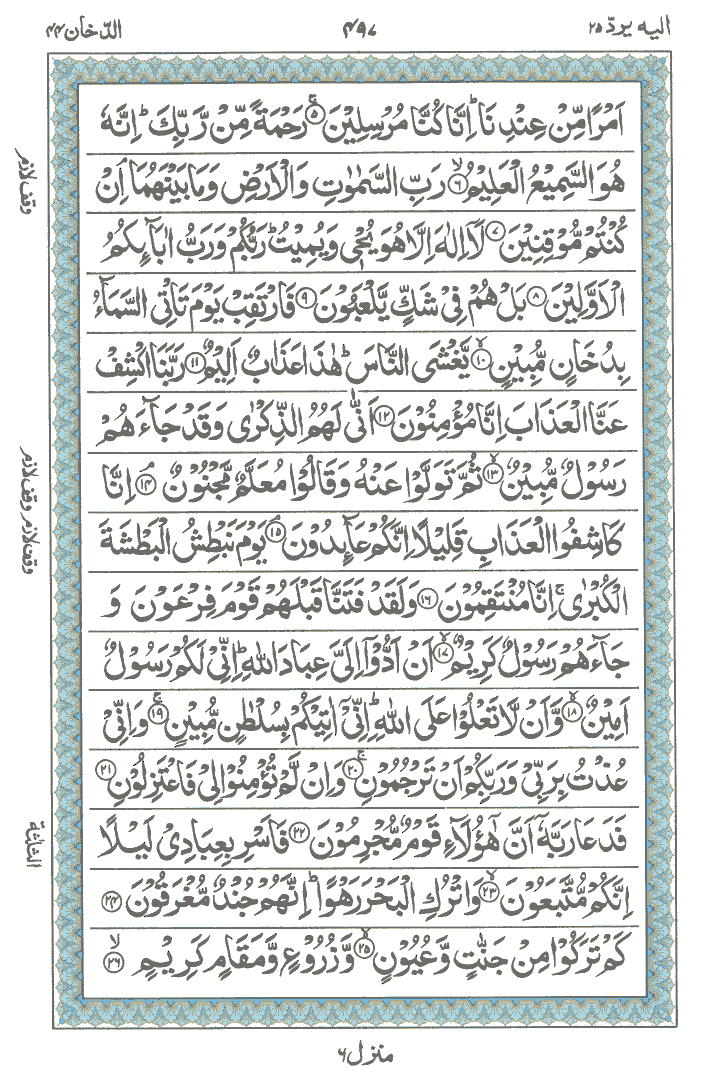 الیه یردّ ۲۵
۴۹۷
الدّخان ۴۴
اَمْرًا مِّنْ عِنْدِنَا ؕ اِنَّا كُنَّا مُرْسِلِیْنَ ۚ۝۵ رَحْمَةً مِّنْ رَّبِّكَ ؕ اِنَّهٗ
هُوَ السَّمِیْعُ الْعَلِیْمُ ۙ۝۶ رَبِّ السَّمٰوٰتِ وَ الْاَرْضِ وَ مَا بَیْنَهُمَا ۘ اِنْ
كُنْتُمْ مُّوْقِنِیْنَ ۝۷ لَاۤ اِلٰهَ اِلَّا هُوَ یُحْیٖ وَ یُمِیْتُ ؕ رَبُّكُمْ وَ رَبُّ اٰبَآىِٕكُمُ
الْاَوَّلِیْنَ ۝۸ بَلْ هُمْ فِیْ شَكٍّ یَّلْعَبُوْنَ ۝۹ فَارْتَقِبْ یَوْمَ تَاْتِی السَّمَآءُ
بِدُخَانٍ مُّبِیْنٍ ۙ۝۱۰ یَّغْشَی النَّاسَ ؕ هٰذَا عَذَابٌ اَلِیْمٌ ۝۱۱ رَبَّنَا اكْشِفْ
عَنَّا الْعَذَابَ اِنَّا مُؤْمِنُوْنَ ۝۱۲ اَنّٰی لَهُمُ الذِّكْرٰی وَ قَدْ جَآءَهُمْ
رَسُوْلٌ مُّبِیْنٌ ۙ۝۱۳ ثُمَّ تَوَلَّوْا عَنْهُ وَ قَالُوْا مُعَلَّمٌ مَّجْنُوْنٌ ۘ۝۱۴ اِنَّا
كَاشِفُوا الْعَذَابِ قَلِیْلًا اِنَّكُمْ عَآىِٕدُوْنَ ۘ۝۱۵ یَوْمَ نَبْطِشُ الْبَطْشَةَ
الْكُبْرٰی ۚ اِنَّا مُنْتَقِمُوْنَ ۝۱۶ وَ لَقَدْ فَتَنَّا قَبْلَهُمْ قَوْمَ فِرْعَوْنَ وَ
جَآءَهُمْ رَسُوْلٌ كَرِیْمٌ ۙ۝۱۷ اَنْ اَدُّوْۤا اِلَیَّ عِبَادَ اللّٰهِ ؕ اِنِّیْ لَكُمْ رَسُوْلٌ
اَمِیْنٌ ۙ۝۱۸ وَّ اَنْ لَّا تَعْلُوْا عَلَی اللّٰهِ ؕ اِنِّیْۤ اٰتِیْكُمْ بِسُلْطٰنٍ مُّبِیْنٍ ۚ۝۱۹ وَ اِنِّیْ
عُذْتُ بِرَبِّیْ وَ رَبِّكُمْ اَنْ تَرْجُمُوْنِ ؗ۝۲۰ وَ اِنْ لَّمْ تُؤْمِنُوْا لِیْ فَاعْتَزِلُوْنِ ۝۲۱
فَدَعَا رَبَّهٗۤ اَنَّ هٰۤؤُلَآءِ قَوْمٌ مُّجْرِمُوْنَ ۝۲۲ فَاَسْرِ بِعِبَادِیْ لَیْلًا
اِنَّكُمْ مُّتَّبَعُوْنَ ۙ۝۲۳ وَ اتْرُكِ الْبَحْرَ رَهْوًا ؕ اِنَّهُمْ جُنْدٌ مُّغْرَقُوْنَ ۝۲۴
كَمْ تَرَكُوْا مِنْ جَنّٰتٍ وَّ عُیُوْنٍ ۙ۝۲۵ وَّ زُرُوْعٍ وَّ مَقَامٍ كَرِیْمٍ ۙ۝۲۶
وقف لازم
وقف لازم
وقف لازم
الثلثة
منزل ۶